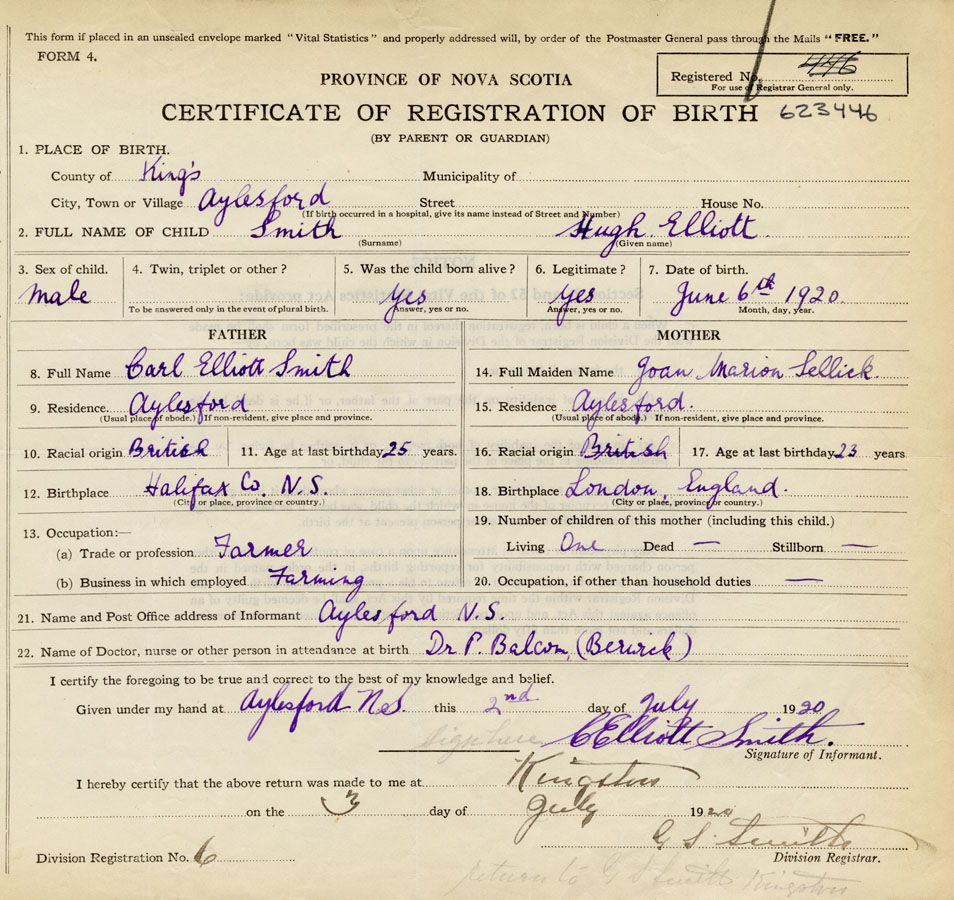 This form if placed in an unsealed envelope marked "Vital Statistics" and properly addressed will, by order of the Postmaster General pass through the Mails "FREE."
FORM 4.
PROVINCE OF NOVA SCOTIA
Registered No. 446
For use of Registrar General only.
CERTIFICATE OF REGISTRATION OF BIRTH 623446
(BY PARENT OR GUARDIAN)
1. PLACE OF BIRTH.
County of King's Municipality of
City, Town or Village Aylesford Street House No.
(If birth occurred in a hospital, give its name instead of Street and Number)
2. FULL NAME OF CHILD Smith Hugh Elliott
(Surname) (Given name)
3. Sex of child. 4. Twin, triplet or other? 5. Was the child born alive? 6. Legitimate? 7. Date of birth.
Male Yes Yes June 6th 1920.
To be answered only in the event of plural birth. Answer, yes or no. Answer, yes or no. Month, day, year.
FATHER MOTHER
8. Full Name Carl Elliott Smith 14. Full Maiden Name Joan Marion Sellick.
9. Residence. Aylesford 15. Residence Aylesford.
(Usual place of abode.) If non-resident, give place and province. (Usual place of abode.) If non-resident, give place and province.
10. Racial origin British 11. Age at last birthday 25 years. 16. Racial origin British 17. Age at last birthday 23 years
12. Birthplace Halifax Co. N.S. 18. Birthplace London, England.
(City or place, province or country.) (City or place, province or country.)
13. Occupation:— 19. Number of children of this mother (including this child.)
(a) Trade or profession. Farmer Living One Dead — Stillborn —
(b) Business in which employed Farming 20. Occupation, if other than household duties —
21. Name and Post Office address of Informant Aylesford N.S.
22. Name of Doctor, nurse or other person in attendance at birth Dr. P. Balcom, (Berwick)
I certify the foregoing to be true and correct to the best of my knowledge and belief.
Given under my hand at Aylesford N.S. this 2nd day of July 1920
Sign here C Elliott Smith.
Signature of Informant.
I hereby certify that the above return was made to me at Kingston
on the 3 day of July 1920
G S Smith
Division Registration No. 6 Division Registrar.
return to G S Smith Kingston